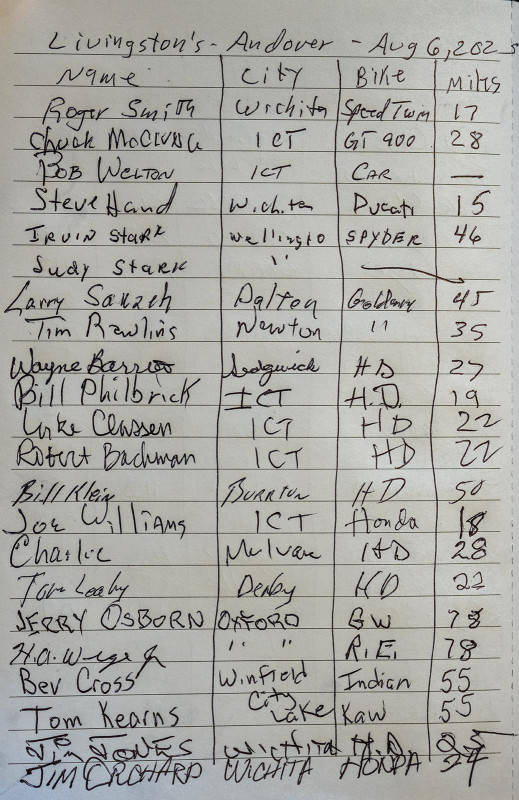 Livingston's - Andover - Aug 6, 2025
Name City Bike Miles
Roger Smith Wichita Speed Twin 17
Chuck McClung ICT GT 900 28
Bob Welton ICT Car —
Steve Hand Wichita Ducati 15
Irvin Stark Wellington SPYDER 46
Judy Stark "
Larry Dalton Goldwing 45
Tim Rawlins Newton " 35
Wayne Sedgwick HD 27
Bill Philbrick ICT H.D. 19
Luke Classen ICT HD 22
Robert Bachman ICT HD 22
Bill Klein Burrton HD 50
Joe Williams ICT Honda 18
Charlie HD 28
Tom Leahy Derby HD 22
JERRY OSBORN OXFORD GW 78
" " R.E. 78
Bev Cross Winfield Indian 55
Tom Kearns City Lake Kaw 55
Jim JONES WICHITA H.D
JIM ORCHARD WICHITA HONDA 24